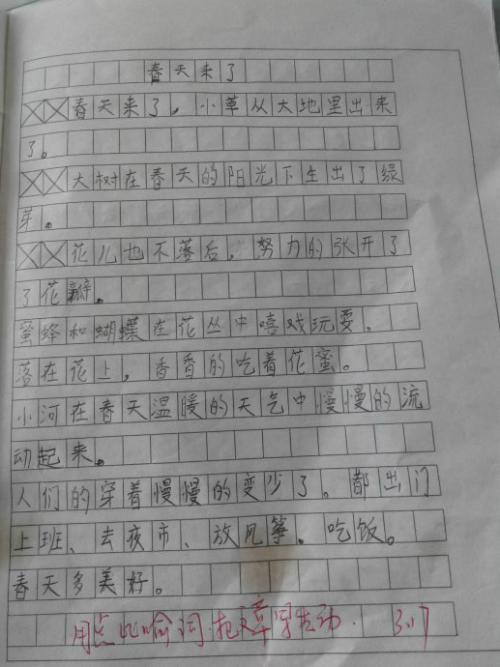 春天来了
春天来了，小草从大地里出来
了。
大树在春天的阳光下生出了绿
芽。
花儿也不落后，努力的张开了
了花瓣。
蜜蜂和蝴蝶在花丛中嘻戏玩耍。
落在花上，香香的吃着花蜜。
小河在春天温暖的天气中慢慢的流
动起来。
人们的穿着慢慢的变少了。都出门
上班、去夜市、放风筝。吃饭。
春天多美好。
用点比喻词.把文章写生动. 3.17